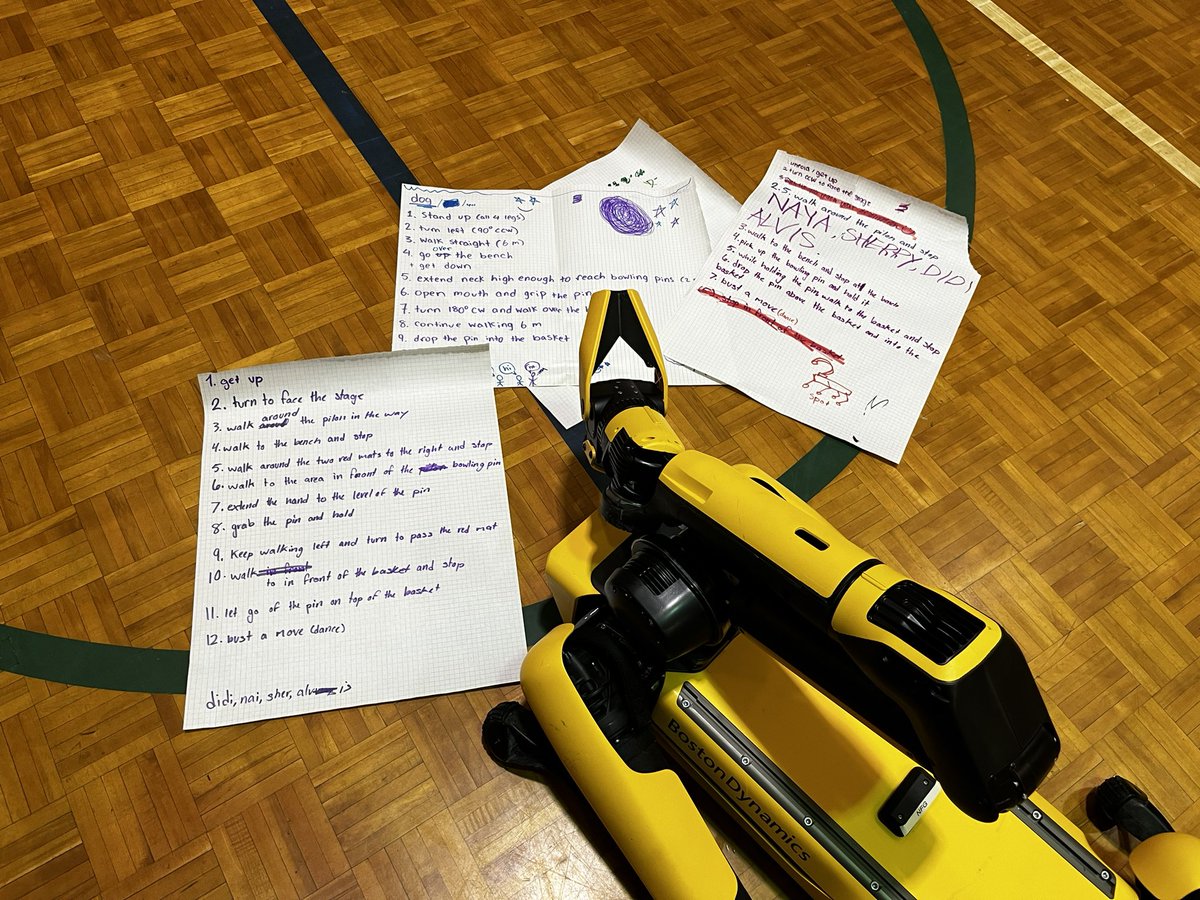 1. get up
2. turn to face the stage
3. walk around the pilon in the way
4. walk to the bench and stop
5. walk around the two red mats to the right and stop
6. walk to the area in front of the bowling pin
7. extend the hand to the level of the pin
8. grab the pin and hold
9. Keep walking left and turn to pass the red mat
10. walk
to in front of the basket and stop
11. let go of the pin on top of the basket
12. bust a move (dance)
didi, nai, sher, alvis
dog
1. Stand up (all 4 legs)
2. turn left (90° ccw)
3. walk straight (6 m)
4. go over the bench
+ get down
5. extend neck high enough to reach bowling pins
6. open mouth and grip the pin
7. turn 180° cw and walk over the
8. continue walking 6 m
9. drop the pin into the basket
hi
get up
2 turn ccw to face the stage
2.5. walk around the pilon and stop
NAYA, SHERRY, DIDI
ALVIS
3. walk to the bench and stop at the bench
4. pick up the bowling pin and hold it
5. while holding the pin, walk to the basket and stop
6. drop the pin above the basket and into the
basket
7. bust a move (dance)
spot
BostonDynamics